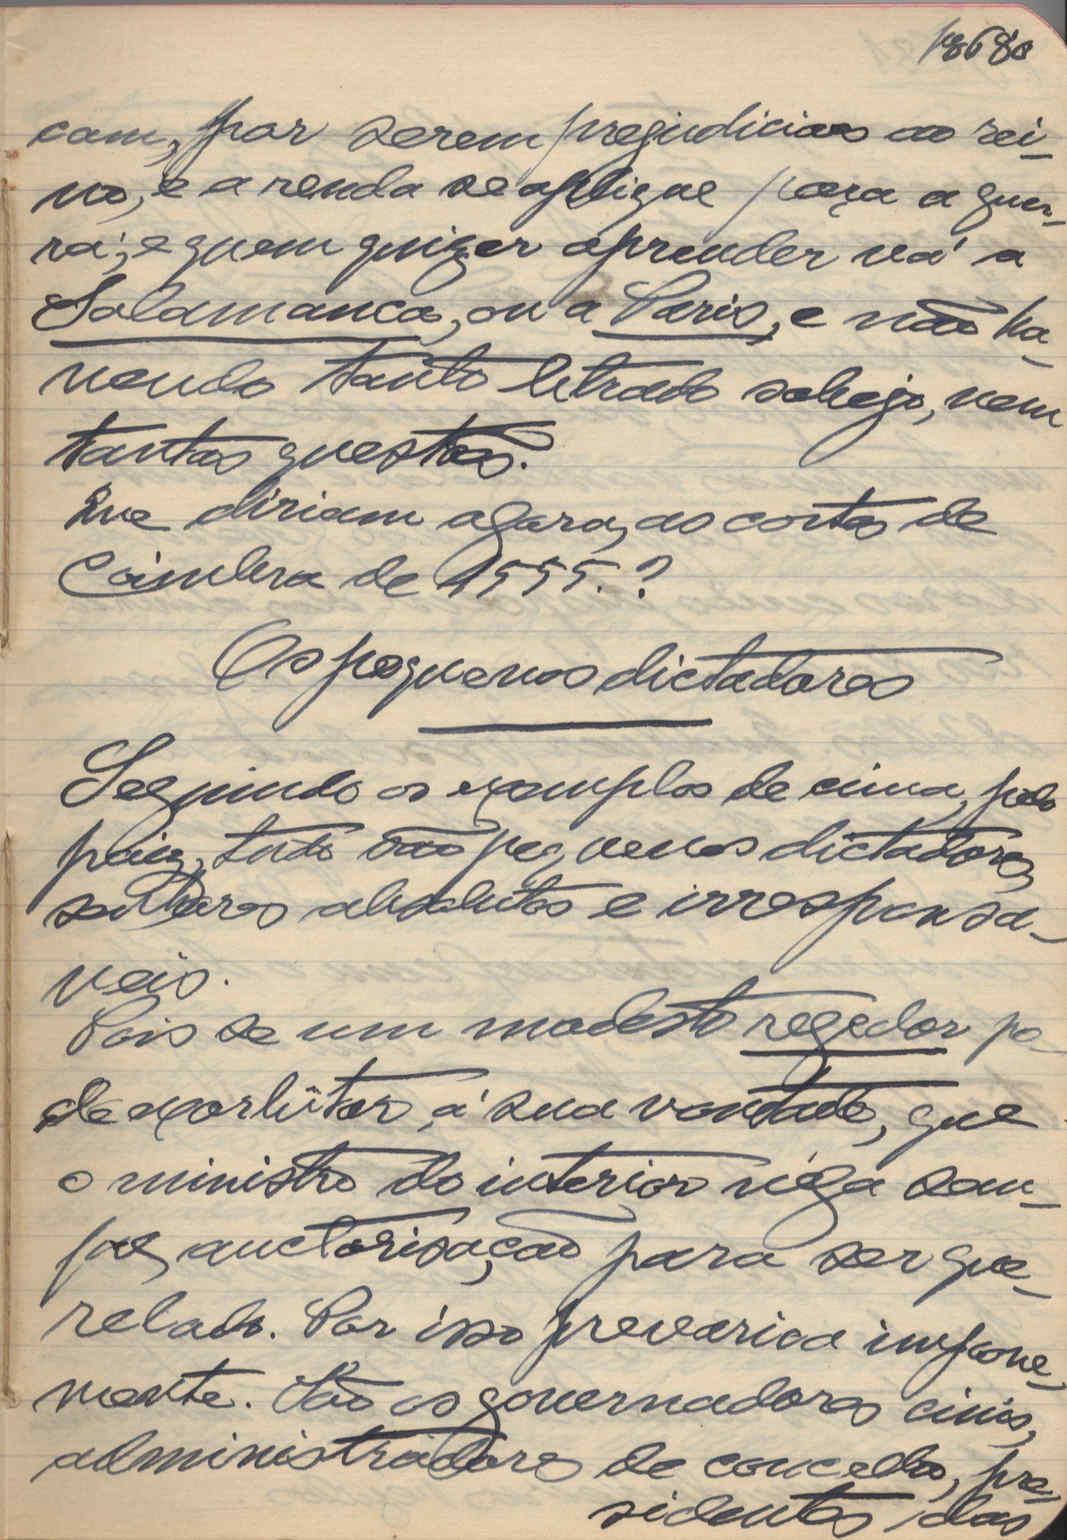 cam, por serem prejudiciaes ao rei-
no, e a renda se aplique para a guer-
ra; e quem quizer aprender vá a
Salamanca, ou a Paris, e não ha-
vendo tanto letrado sobejo, nem
tantas questões.
Que diriam agora, as cortes de
Coimbra de 1555.?
Os pequenos dictadores
Seguindo os exemplos de cima, pelo
paiz, tudo são pequenos dictadores,
senhores absolutos e irresponsa-
veis.
Pois se um modesto regedor po-
de exorbitar, á sua vontade, que
o ministro do interior néga sem-
pre, auctorisação para ser que-
relado. Por isso prevarica impune-
mente. São os governadores civis,
administradores de concelho, pre-
sidentes das